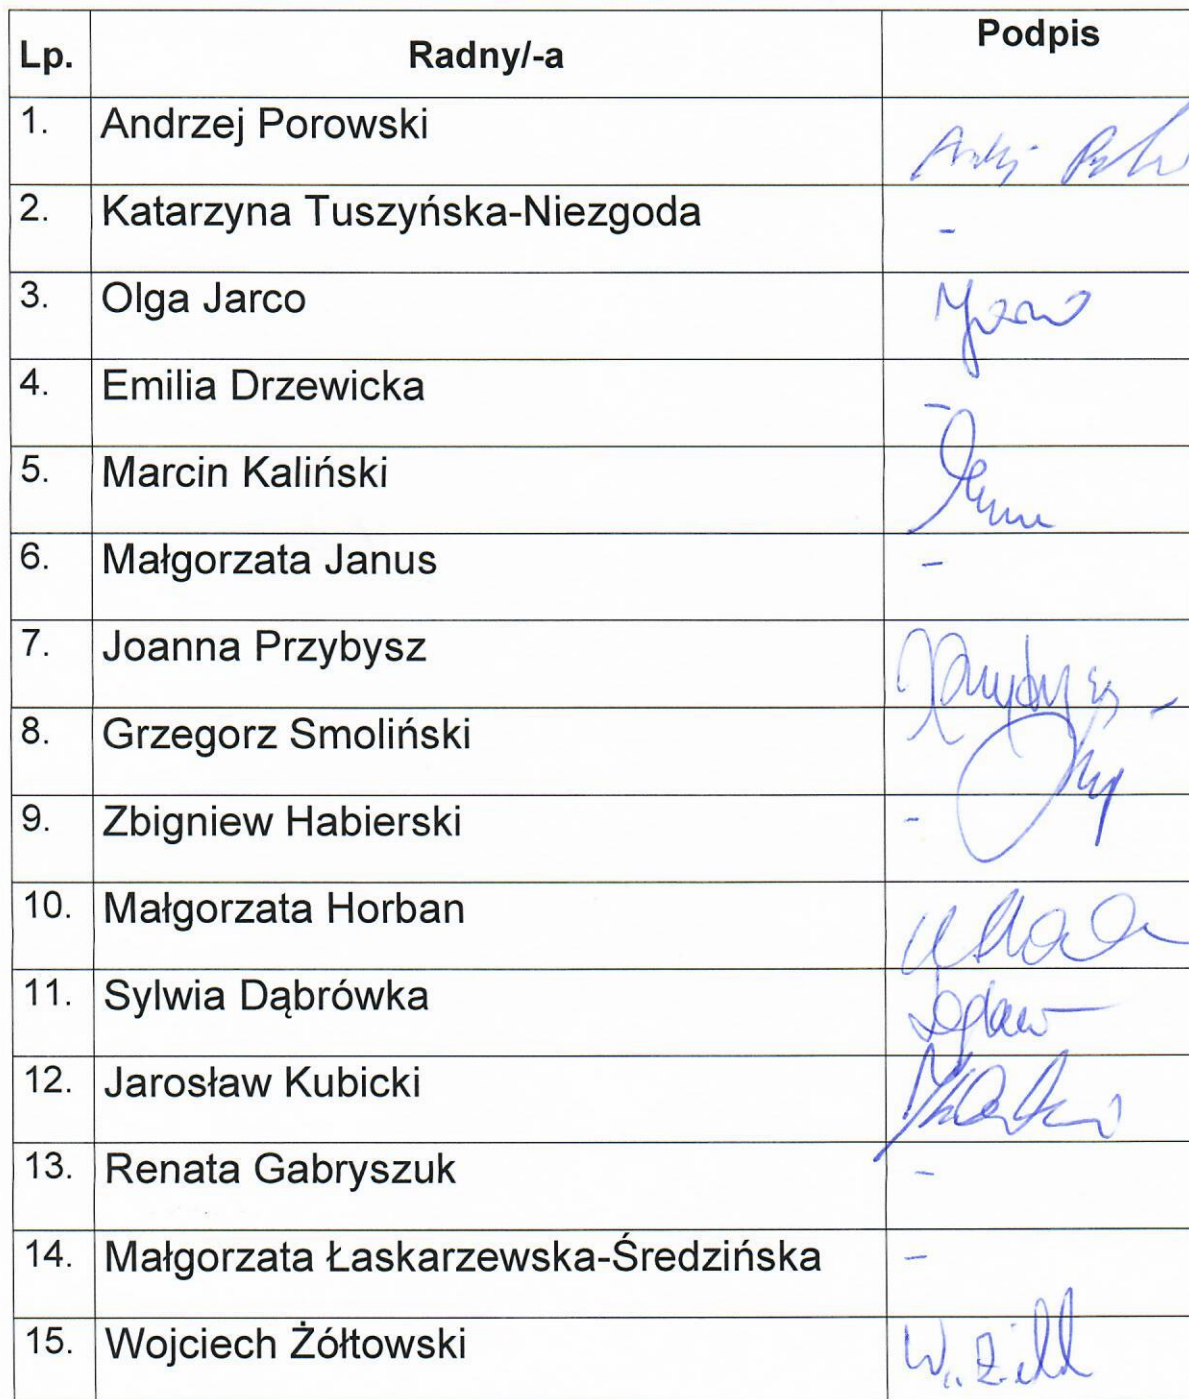 Lp. Radny/-a Podpis
1. Andrzej Porowski
2. Katarzyna Tuszyńska-Niezgoda -
3. Olga Jarco
4. Emilia Drzewicka -
5. Marcin Kaliński
6. Małgorzata Janus -
7. Joanna Przybysz
8. Grzegorz Smoliński
9. Zbigniew Habierski -
10. Małgorzata Horban
11. Sylwia Dąbrówka
12. Jarosław Kubicki
13. Renata Gabryszuk -
14. Małgorzata Łaskarzewska-Średzińska -
15. Wojciech Żółtowski